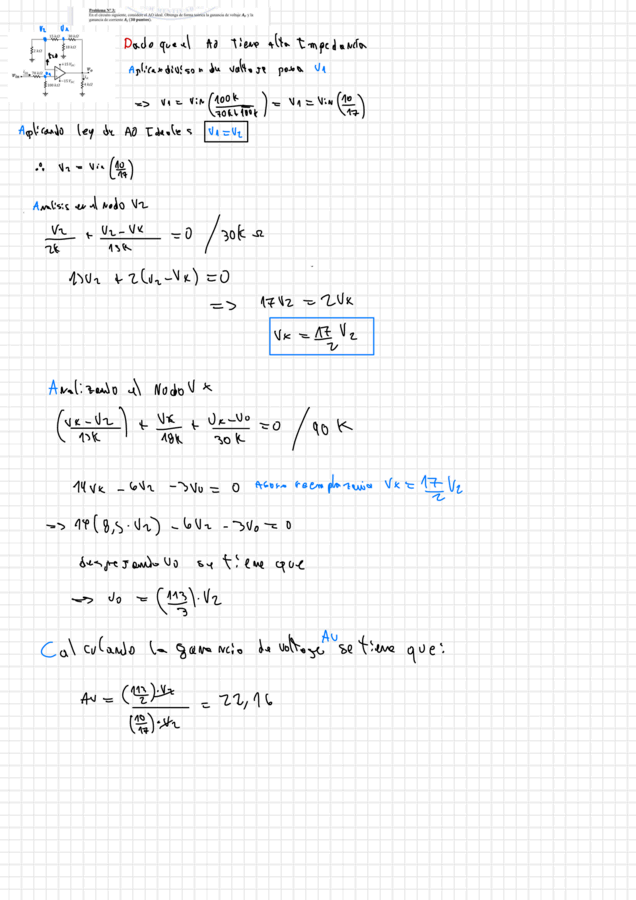 Problema N° 3:
En el circuito siguiente, considere el AO ideal. Obtenga de forma teórica la ganancia de voltaje Av y la
ganancia de corriente Ai (20 puntos).
V2 Vx
Dado que el AO tiene alta impedancia
Aplicando divison de voltaje para V1
=> V1 = Vin (100K / 70K+100K) = V1 = Vin (10/17)
Aplicando ley de AO Ideales V1 = V2
∴ V2 = Vin (10/17)
Analisis en el Nodo V2
V2/2K + (V2 - Vx)/15K = 0 / 30K Ω
15V2 + 2(V2 - Vx) = 0
=> 17V2 = 2Vx
Vx = 17/2 V2
Analizando el Nodo Vx
((Vx - V2)/15K) + Vx/18K + (Vx - Vo)/30K = 0 / 90 K
14Vx - 6V2 - 3Vo = 0 Ahora reemplazando Vx = 17/2 V2
=> 14(8,5 · V2) - 6V2 - 3Vo = 0
despejando Vo se tiene que
=> Vo = (113/3) · V2
Calculando la ganancia de voltaje Av se tiene que:
Av = (113/2) · V2 / (10/17) · V2 = 22,16